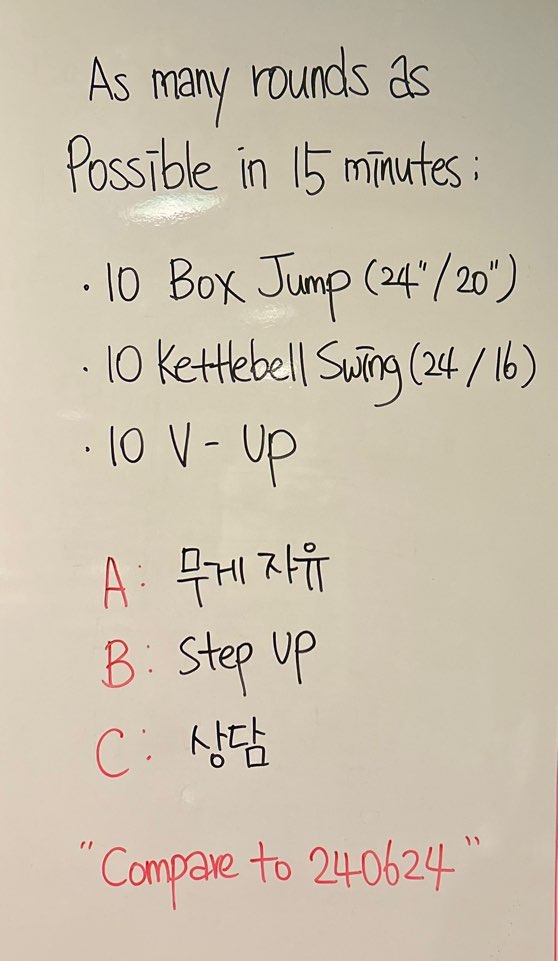 As many rounds as
Possible in 15 minutes:
· 10 Box Jump (24"/20")
· 10 Kettlebell Swing (24/16)
· 10 V-Up
A: 무게 자유
B: Step UP
C: 상담
"Compare to 240624"